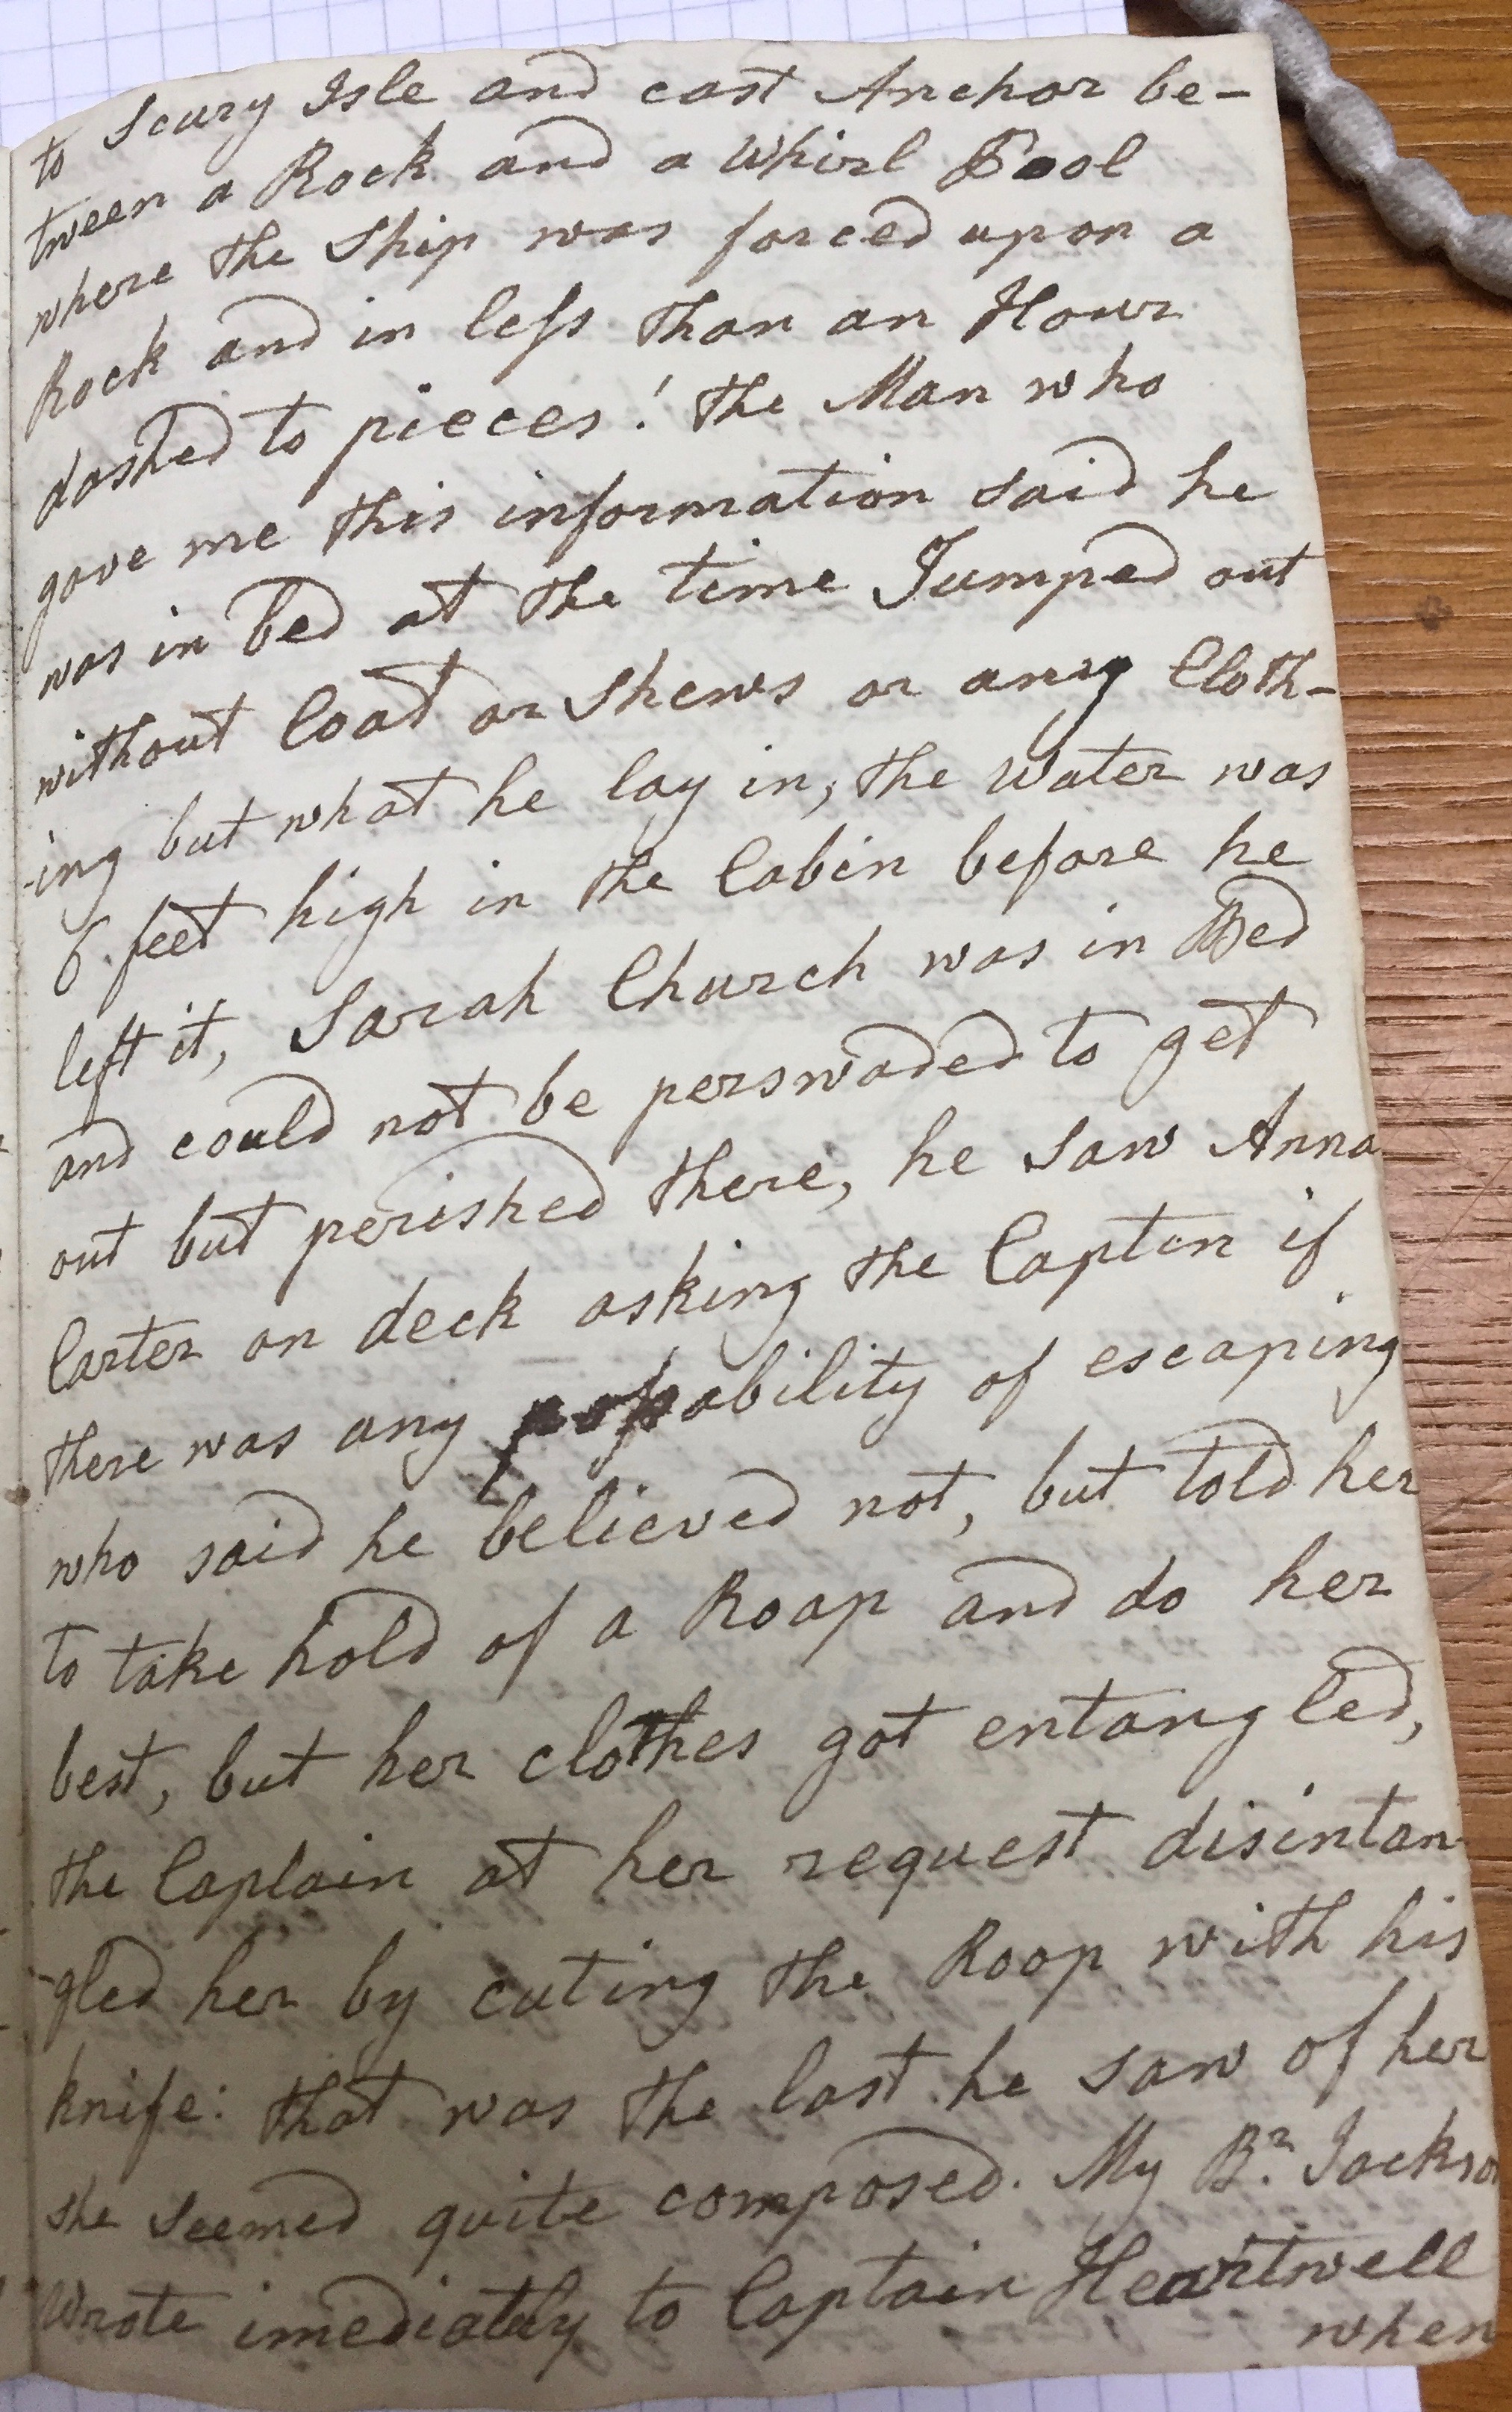 to Scury Isle and cast Anchor be-
tween a Rock and a Whirl Pool
where the Ship was forced upon a
Rock and in less than an Hour
dashed to pieces! the Man who
gave me this information said he
was in bed at the time Jumped out
without Coat or Shews or any Cloth-
-ing but what he lay in, the Water was
6 feet high in the Cabin before he
left it, Sarah Church was in Bed
and could not be perswaded to get
out but perished there, he saw Anna
Carter on deck asking the Captin if
there was any posability of escaping
who said he believed not, but told her
to take hold of a Roap and do her
best, but her clothes got entangled,
the Captain at her request disintan-
-gled her by cuting the Roop with his
knife: that was the last he saw of her
she seemed quite composed. My Br. Jackson
Wrote imediatly to Captain Heartwell
when